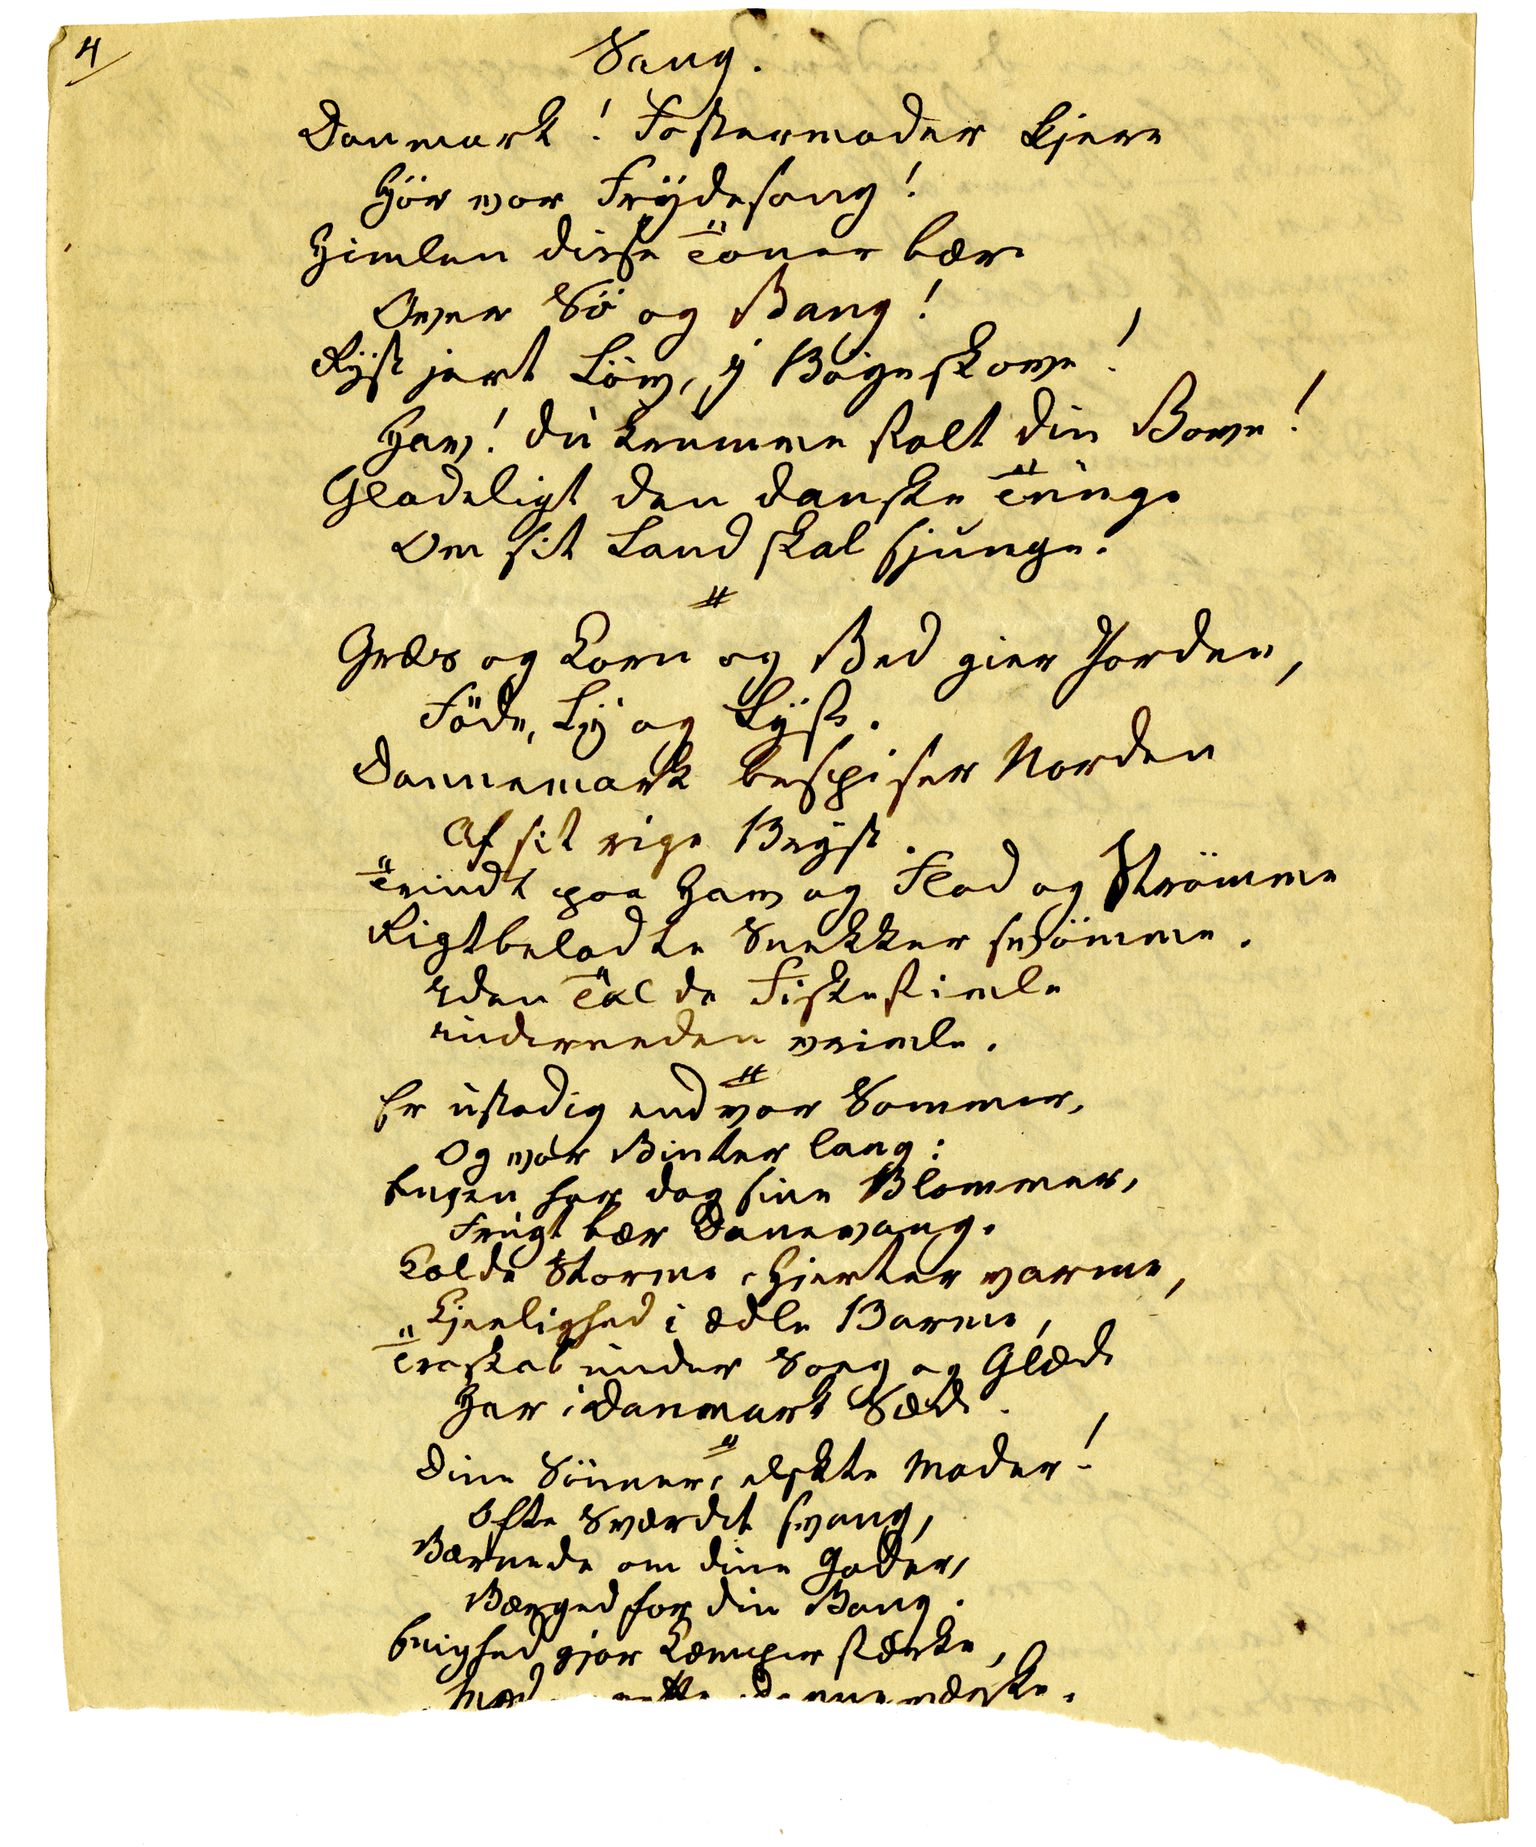 4
Sang.
Danmark! Fostermoder kjere
Hör vor Frÿdesang!
Himlen disse Toner bære
Over Sö og Vang!
Rÿst jert Löv, I Bögeskove!
Hav! du krumme stolt din Vove!
Gladeligt den danske Tunge
Om sit Land skal sjunge.
Græs og Korn og Ved gier Jorden,
Föde, Lÿ og Lÿst.
Dannemark bespiser Norden
Af sit rige Brÿst.
Trindt paa Hav og Flod og Strömme
Rigtbeladte Snekker svömme.
Uden Tal de Fiskestimle
underneden vrimle.
Er ustadig end vor Sommer,
Og vor Vinter lang:
Engen har dog sine Blommer,
Frugt bær Danevang.
Kolde Storme, Hjerter varme,
Kjerlighed i ædle Barme,
Troskab under Sorg og Glæde
Har i Danmark Sæde.
Dine Sönner, elskte Moder!
Ofte Sværdet svang,
Værnede om dine Goder,
Værged for din Vang.
Enighed gjør Kæmper stærke,